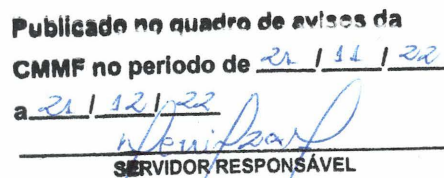 Publicado no quadro de avisos da
CMMF no periodo de 21 / 11 / 22
a 21 / 12 / 22
SERVIDOR RESPONSÁVEL